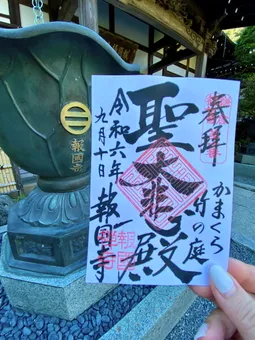 奉拝
かまくら
竹の庭
聖大悲殿
令和六年
九月十日
報国寺
報國寺